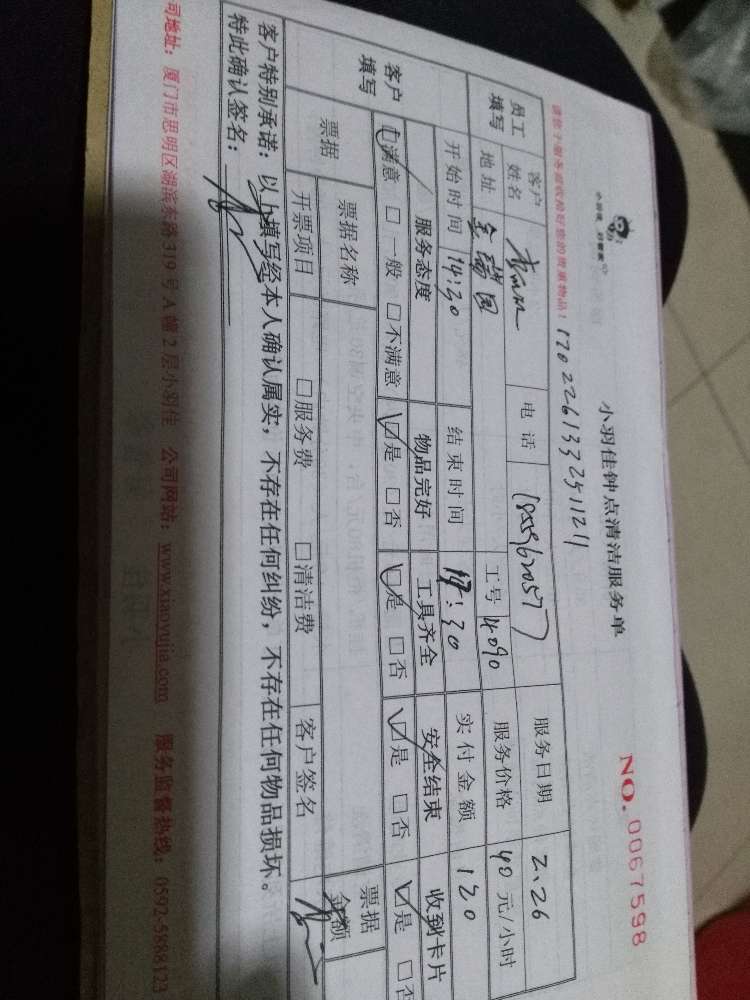 小羽佳钟点清洁服务单
NO. 0067598
1702261332511211
员工填写 客户姓名 电话 服务日期 2.26
地址 金瑞园 工号 4090 服务价格 40 元/小时
开始时间 14:30 结束时间 17:30 实付金额 120
客户填写 服务态度 物品完好 工具齐全 安全结束 收到卡片
☑满意 □一般 □不满意 ☑是 □否 ☑是 □否 ☑是 □否 ☑是 □否
票据 票据名称 票据金额
开票项目 □服务费 □清洁费 客户签名
客户特别承诺：以上填写经本人确认属实，不存在任何纠纷，不存在任何物品损坏。
特此确认签名：
司地址：厦门市思明区湖滨东路319号A幢2层小羽佳 公司网站：www.xiaoyujia.com 服务监督热线：0592-5888123